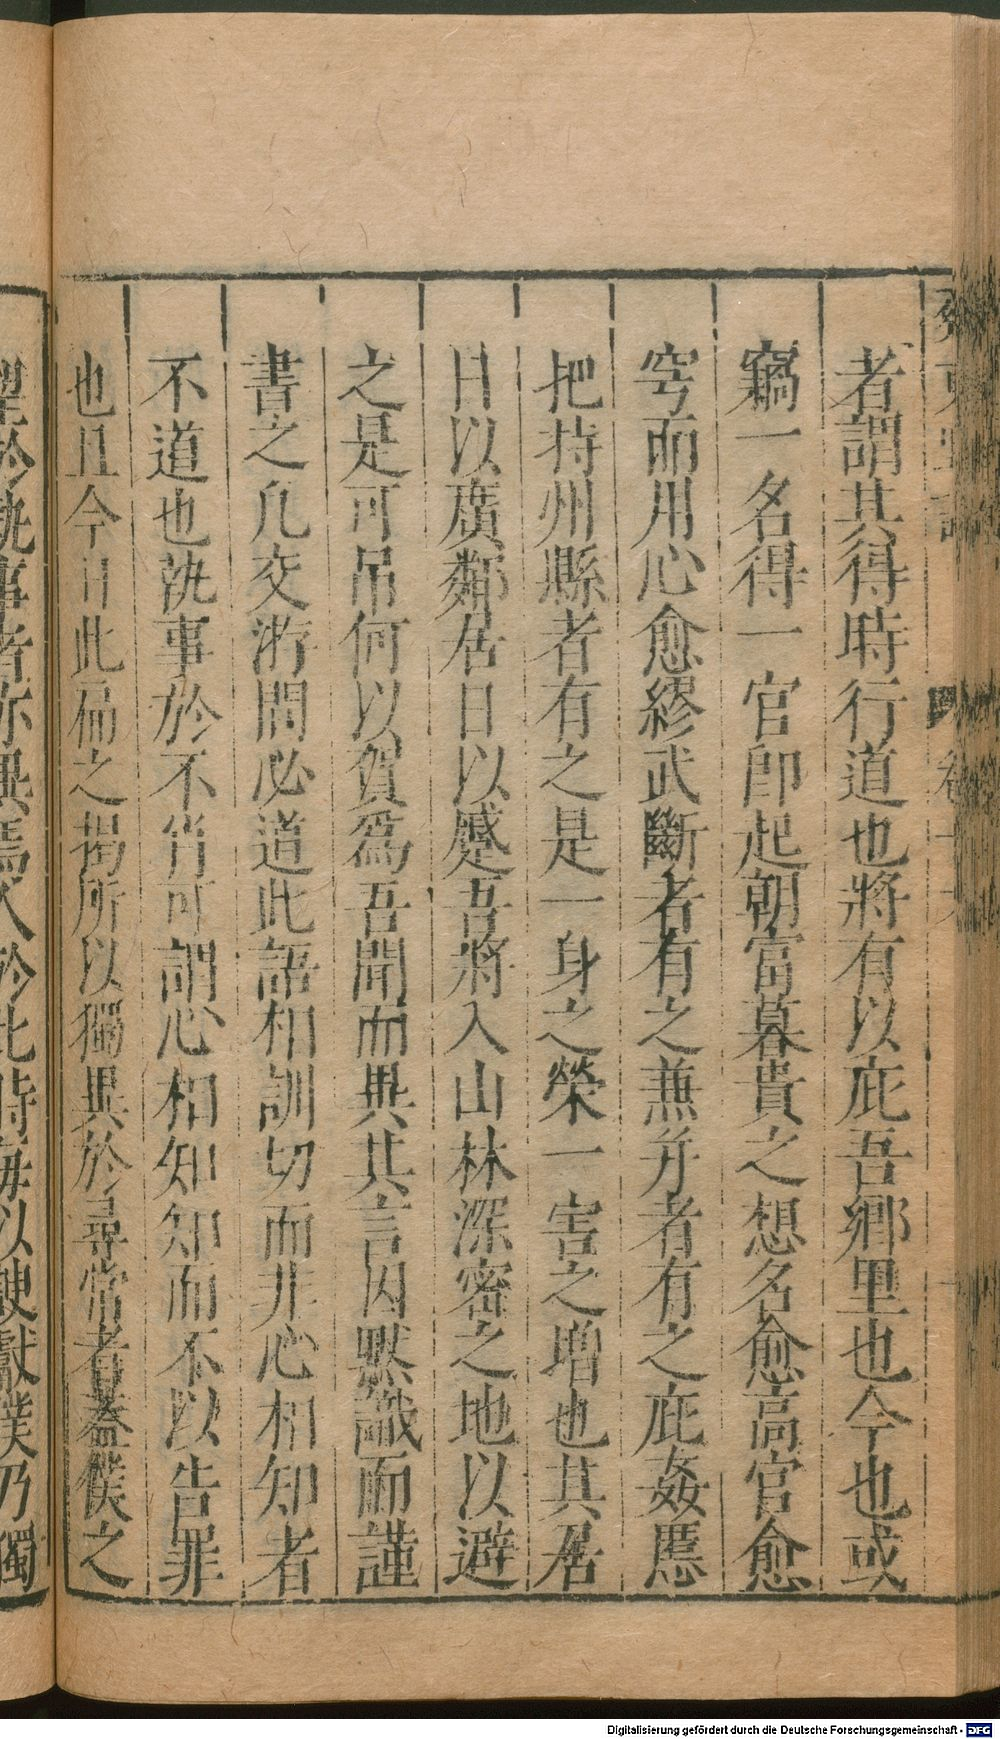 者謂其得時行道也將有以庇吾鄉里也今也或
竊一名得一官卽起朝富暮貴之想名愈高官愈
穹而用心愈繆武斷者有之兼并者有之庇姦慝
把持州縣者有之是一身之榮一害之增也其居
日以廣鄰居日以蹙吾將入山林深密之地以避
之是可吊何以賀爲吾聞而異其言因默識而謹
書之凡交游間必道此語相訓切而非心相知者
不道也執事於不肖可謂心相知知而不以告罪
也且今日此扁之揭所以獨異於尋常者蓋僕之
執事者亦異焉人於此時毎以諛獻僕乃獨
Digitalisierung gefördert durch die Deutsche Forschungsgemeinschaft - DFG